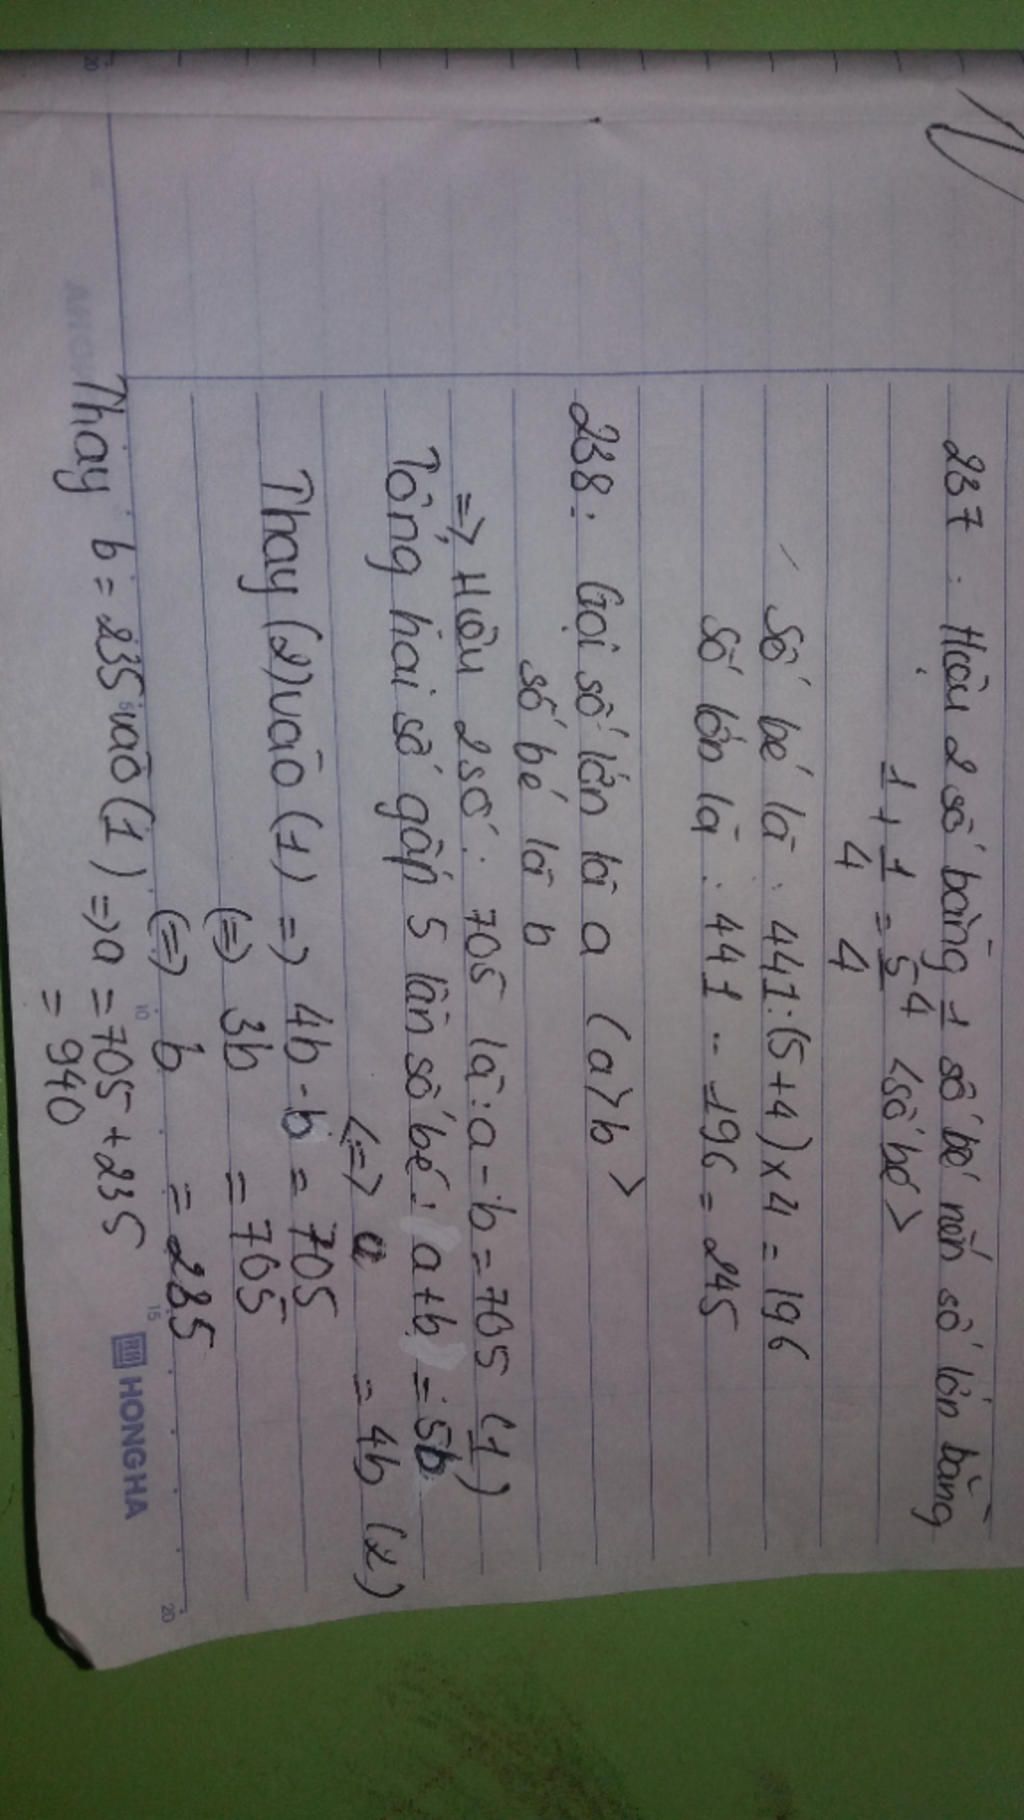 237: Hiệu 2 số bằng 1/4 số bé nên số lớn bằng
1 + 1/4 = 5/4 <số bé>
Số bé là : 441:(5+4)×4 = 196
Số lớn là : 441 - 196 = 245
238: Gọi số lớn là a (a>b>
số bé là b
=> Hiệu 2 số: 705 là: a-b = 705 (1)
Tổng hai số gấp 5 lần số bé: a+b = 5b
<=> a = 4b (2)
Thay (2) vào (1) => 4b - b = 705
(=) 3b = 705
(=) b = 235
Thay b = 235 vào (1) => a = 705 + 235
= 940
HONG HA
5 10 15 20
20